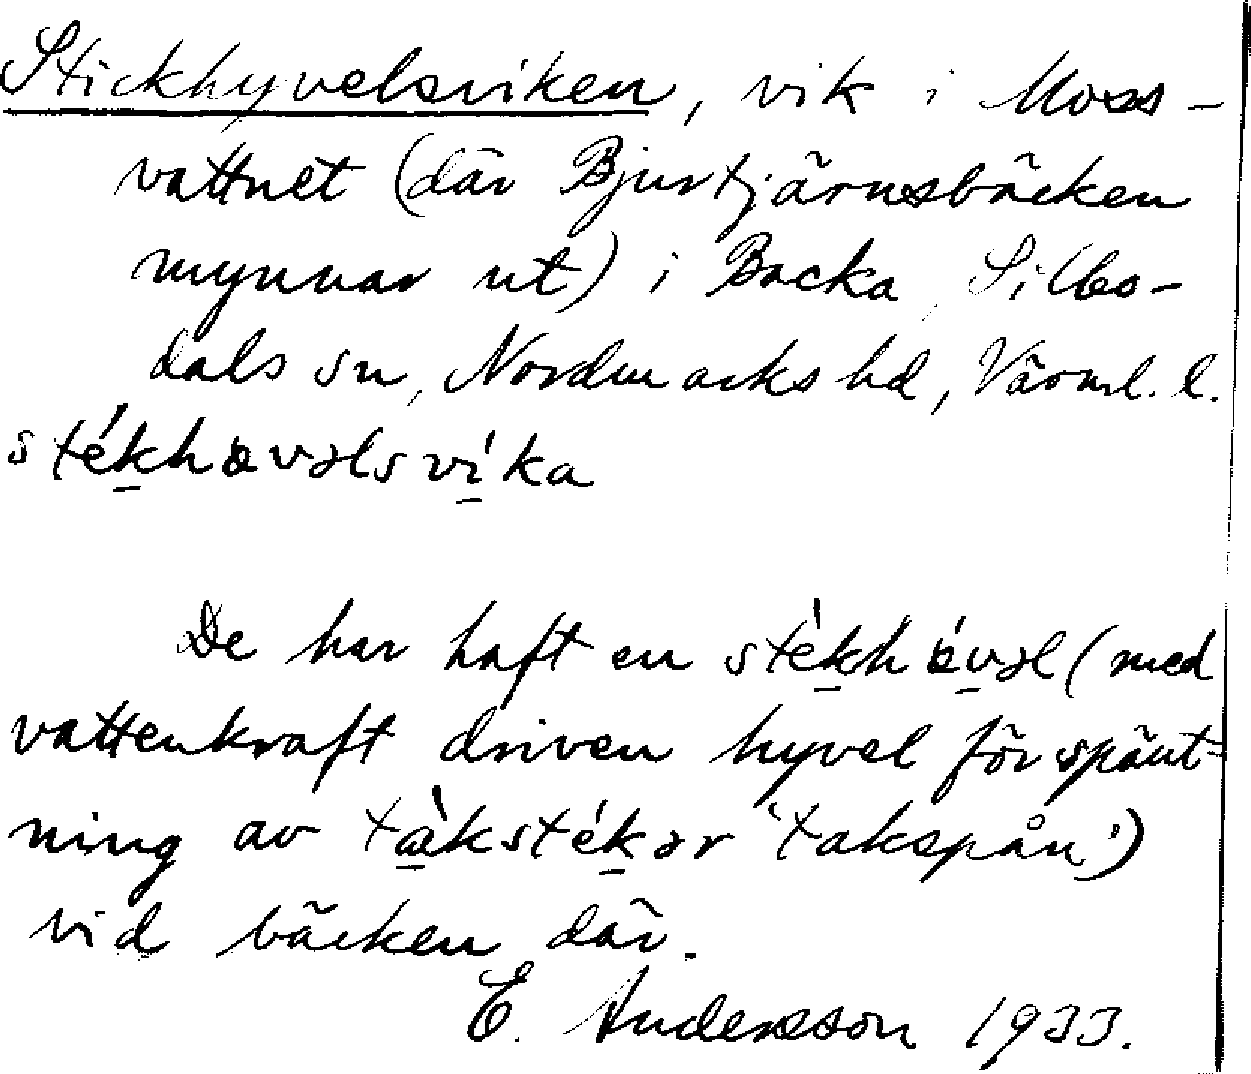 Stickhyvelsviken, vik i Moss-
vattnet (där Bjurtjärnsbäcken
mynnar ut) i Backa, Sillbo-
dals sn, Nordmarks hd, Värml. l.
stékhøvəlsvíka
De har haft en stèkhøvəl (med
vattenkraft driven hyvel för spänt-
ning av tàkstékər 'takspån')
vid bäcken där.
E. Andersson 1933.